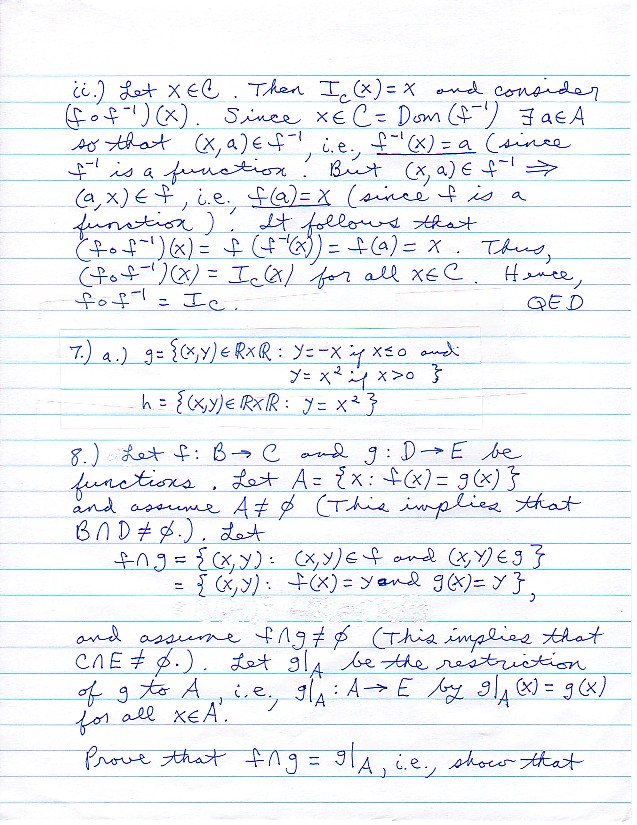 ii.) Let x∈C. Then I_C(x)=x and consider
(f∘f⁻¹)(x). Since x∈C=Dom(f⁻¹) ∃a∈A
so that (x,a)∈f⁻¹, i.e., f⁻¹(x)=a (since
f⁻¹ is a function. But (x,a)∈f⁻¹ ⇒
(a,x)∈f, i.e. f(a)=x (since f is a
function). It follows that
(f∘f⁻¹)(x) = f(f⁻¹(x)) = f(a) = x. Thus,
(f∘f⁻¹)(x) = I_C(x) for all x∈C. Hence,
f∘f⁻¹ = I_C. QED
7.) a.) g={(x,y)∈R×R: y=-x if x≤0 and
y=x² if x>0 }
h={(x,y)∈R×R: y=x²}
8.) Let f: B→C and g: D→E be
functions. Let A={x: f(x)=g(x)}
and assume A≠∅ (This implies that
B∩D≠∅.). Let
f∩g={(x,y): (x,y)∈f and (x,y)∈g}
={(x,y): f(x)=y and g(x)=y},
and assume f∩g≠∅ (This implies that
C∩E≠∅.). Let g|_A be the restriction
of g to A, i.e., g|_A: A→E by g|_A(x)=g(x)
for all x∈A.
Prove that f∩g = g|_A, i.e., show that